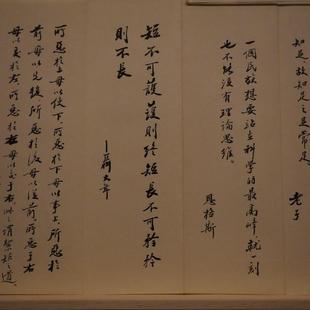 知足故知足之足常足
老子
一個民族想要站立科學的最高峰,就一刻
也不能沒有理論思維。
恩格斯
短不可護護則終短長不可矜矜
則不長
—聶大年
所惡於上毋以使下所惡於下毋以事上所惡於
前毋以先後所惡於後毋以從前所惡于右
毋以交於左所惡於左毋以交于右此之謂絜矩之道。